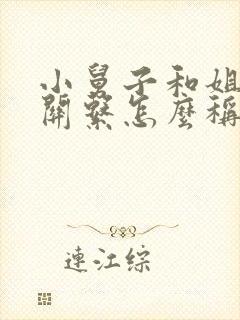 小舅子和姐
關繫怎麼稱
連江綜